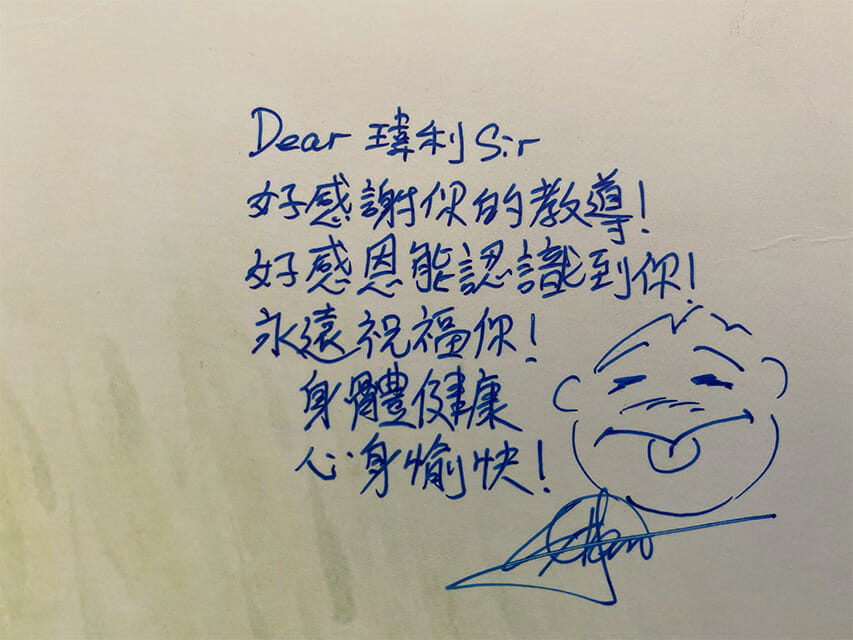 Dear 瑋利 Sir
好感謝你的教導!
好感恩能認識到你!
永遠祝福你!
身體健康
心身愉快!